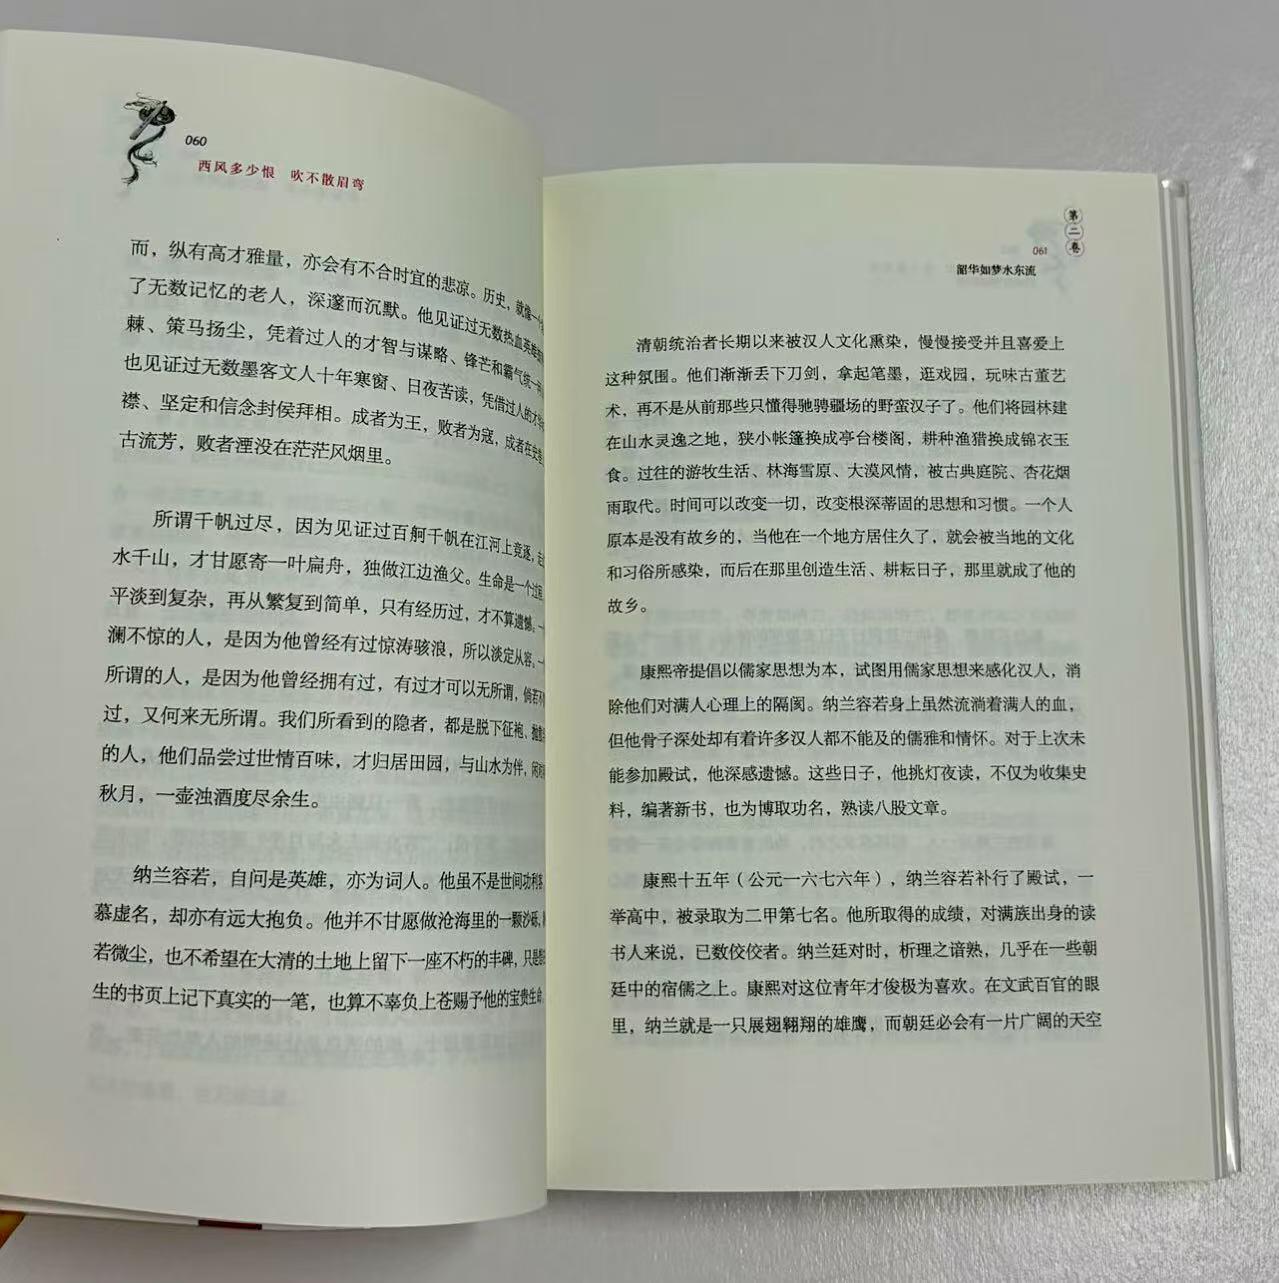 060
西风多少恨 吹不散眉弯
而，纵有高才雅量，亦会有不合时宜的悲凉。历史，就像一个
了无数记忆的老人，深邃而沉默。他见证过无数热血英雄
棘、策马扬尘，凭着过人的才智与谋略、锋芒和霸气统一
也见证过无数墨客文人十年寒窗、日夜苦读，凭借过人的才华
襟、坚定和信念封侯拜相。成者为王，败者为寇，成者在史
古流芳，败者湮没在茫茫风烟里。
所谓千帆过尽，因为见证过百舸千帆在江河上竞逐，走
水千山，才甘愿寄一叶扁舟，独做江边渔父。生命是一个过程，
平淡到复杂，再从繁复到简单，只有经历过，才不算遗憾。一
澜不惊的人，是因为他曾经有过惊涛骇浪，所以淡定从容。一
所谓的人，是因为他曾经拥有过，有过才可以无所谓，倘若不
过，又何来无所谓。我们所看到的隐者，都是脱下征袍、抛
的人，他们品尝过世情百味，才归居田园，与山水为伴，闲
秋月，一壶浊酒度尽余生。
纳兰容若，自问是英雄，亦为词人。他虽不是世间功利客，
慕虚名，却亦有远大抱负。他并不甘愿做沧海里的一颗沙砾，
若微尘，也不希望在大清的土地上留下一座不朽的丰碑，只是
生的书页上记下真实的一笔，也算不辜负上苍赐予他的宝贵生命。
第二卷
061
韶华如梦水东流
清朝统治者长期以来被汉人文化熏染，慢慢接受并且喜爱上
这种氛围。他们渐渐丢下刀剑，拿起笔墨，逛戏园，玩味古董艺
术，再不是从前那些只懂得驰骋疆场的野蛮汉子了。他们将园林建
在山水灵逸之地，狭小帐篷换成亭台楼阁，耕种渔猎换成锦衣玉
食。过往的游牧生活、林海雪原、大漠风情，被古典庭院、杏花烟
雨取代。时间可以改变一切，改变根深蒂固的思想和习惯。一个人
原本是没有故乡的，当他在一个地方居住久了，就会被当地的文化
和习俗所感染，而后在那里创造生活、耕耘日子，那里就成了他的
故乡。
康熙帝提倡以儒家思想为本，试图用儒家思想来感化汉人，消
除他们对满人心理上的隔阂。纳兰容若身上虽然流淌着满人的血，
但他骨子深处却有着许多汉人都不能及的儒雅和情怀。对于上次未
能参加殿试，他深感遗憾。这些日子，他挑灯夜读，不仅为收集史
料，编著新书，也为博取功名，熟读八股文章。
康熙十五年（公元一六七六年），纳兰容若补行了殿试，一
举高中，被录取为二甲第七名。他所取得的成绩，对满族出身的读
书人来说，已数佼佼者。纳兰廷对时，析理之谙熟，几乎在一些朝
廷中的宿儒之上。康熙对这位青年才俊极为喜欢。在文武百官的眼
里，纳兰就是一只展翅翱翔的雄鹰，而朝廷必会有一片广阔的天空